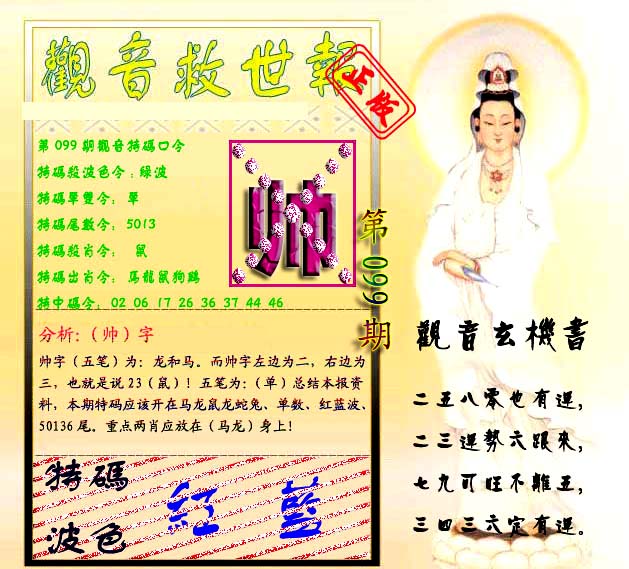 觀音救世報
正版
第099期觀音特碼口令
特碼殺波色令:綠波
特碼單雙令: 單
特碼尾數令: 5013
特碼殺肖令: 鼠
特碼出肖令: 馬龍鼠狗鷄
特中碼令: 02 06 17 26 36 37 44 46
帅
第 099 期
分析:(帅)字
帅字(五笔)为:龙和马。而帅字左边为二,右边为
三,也就是说23(鼠)!五笔为:(单)总结本报资
料,本期特码应该开在马龙鼠龙蛇兔、单数、红蓝波、
50136尾。重点两肖应放在(马龙)身上!
特碼
波色
紅 藍
觀音玄機書
二五八零也有運,
二三運勢六跟來,
七九可旺不離五,
三四三六定有運。